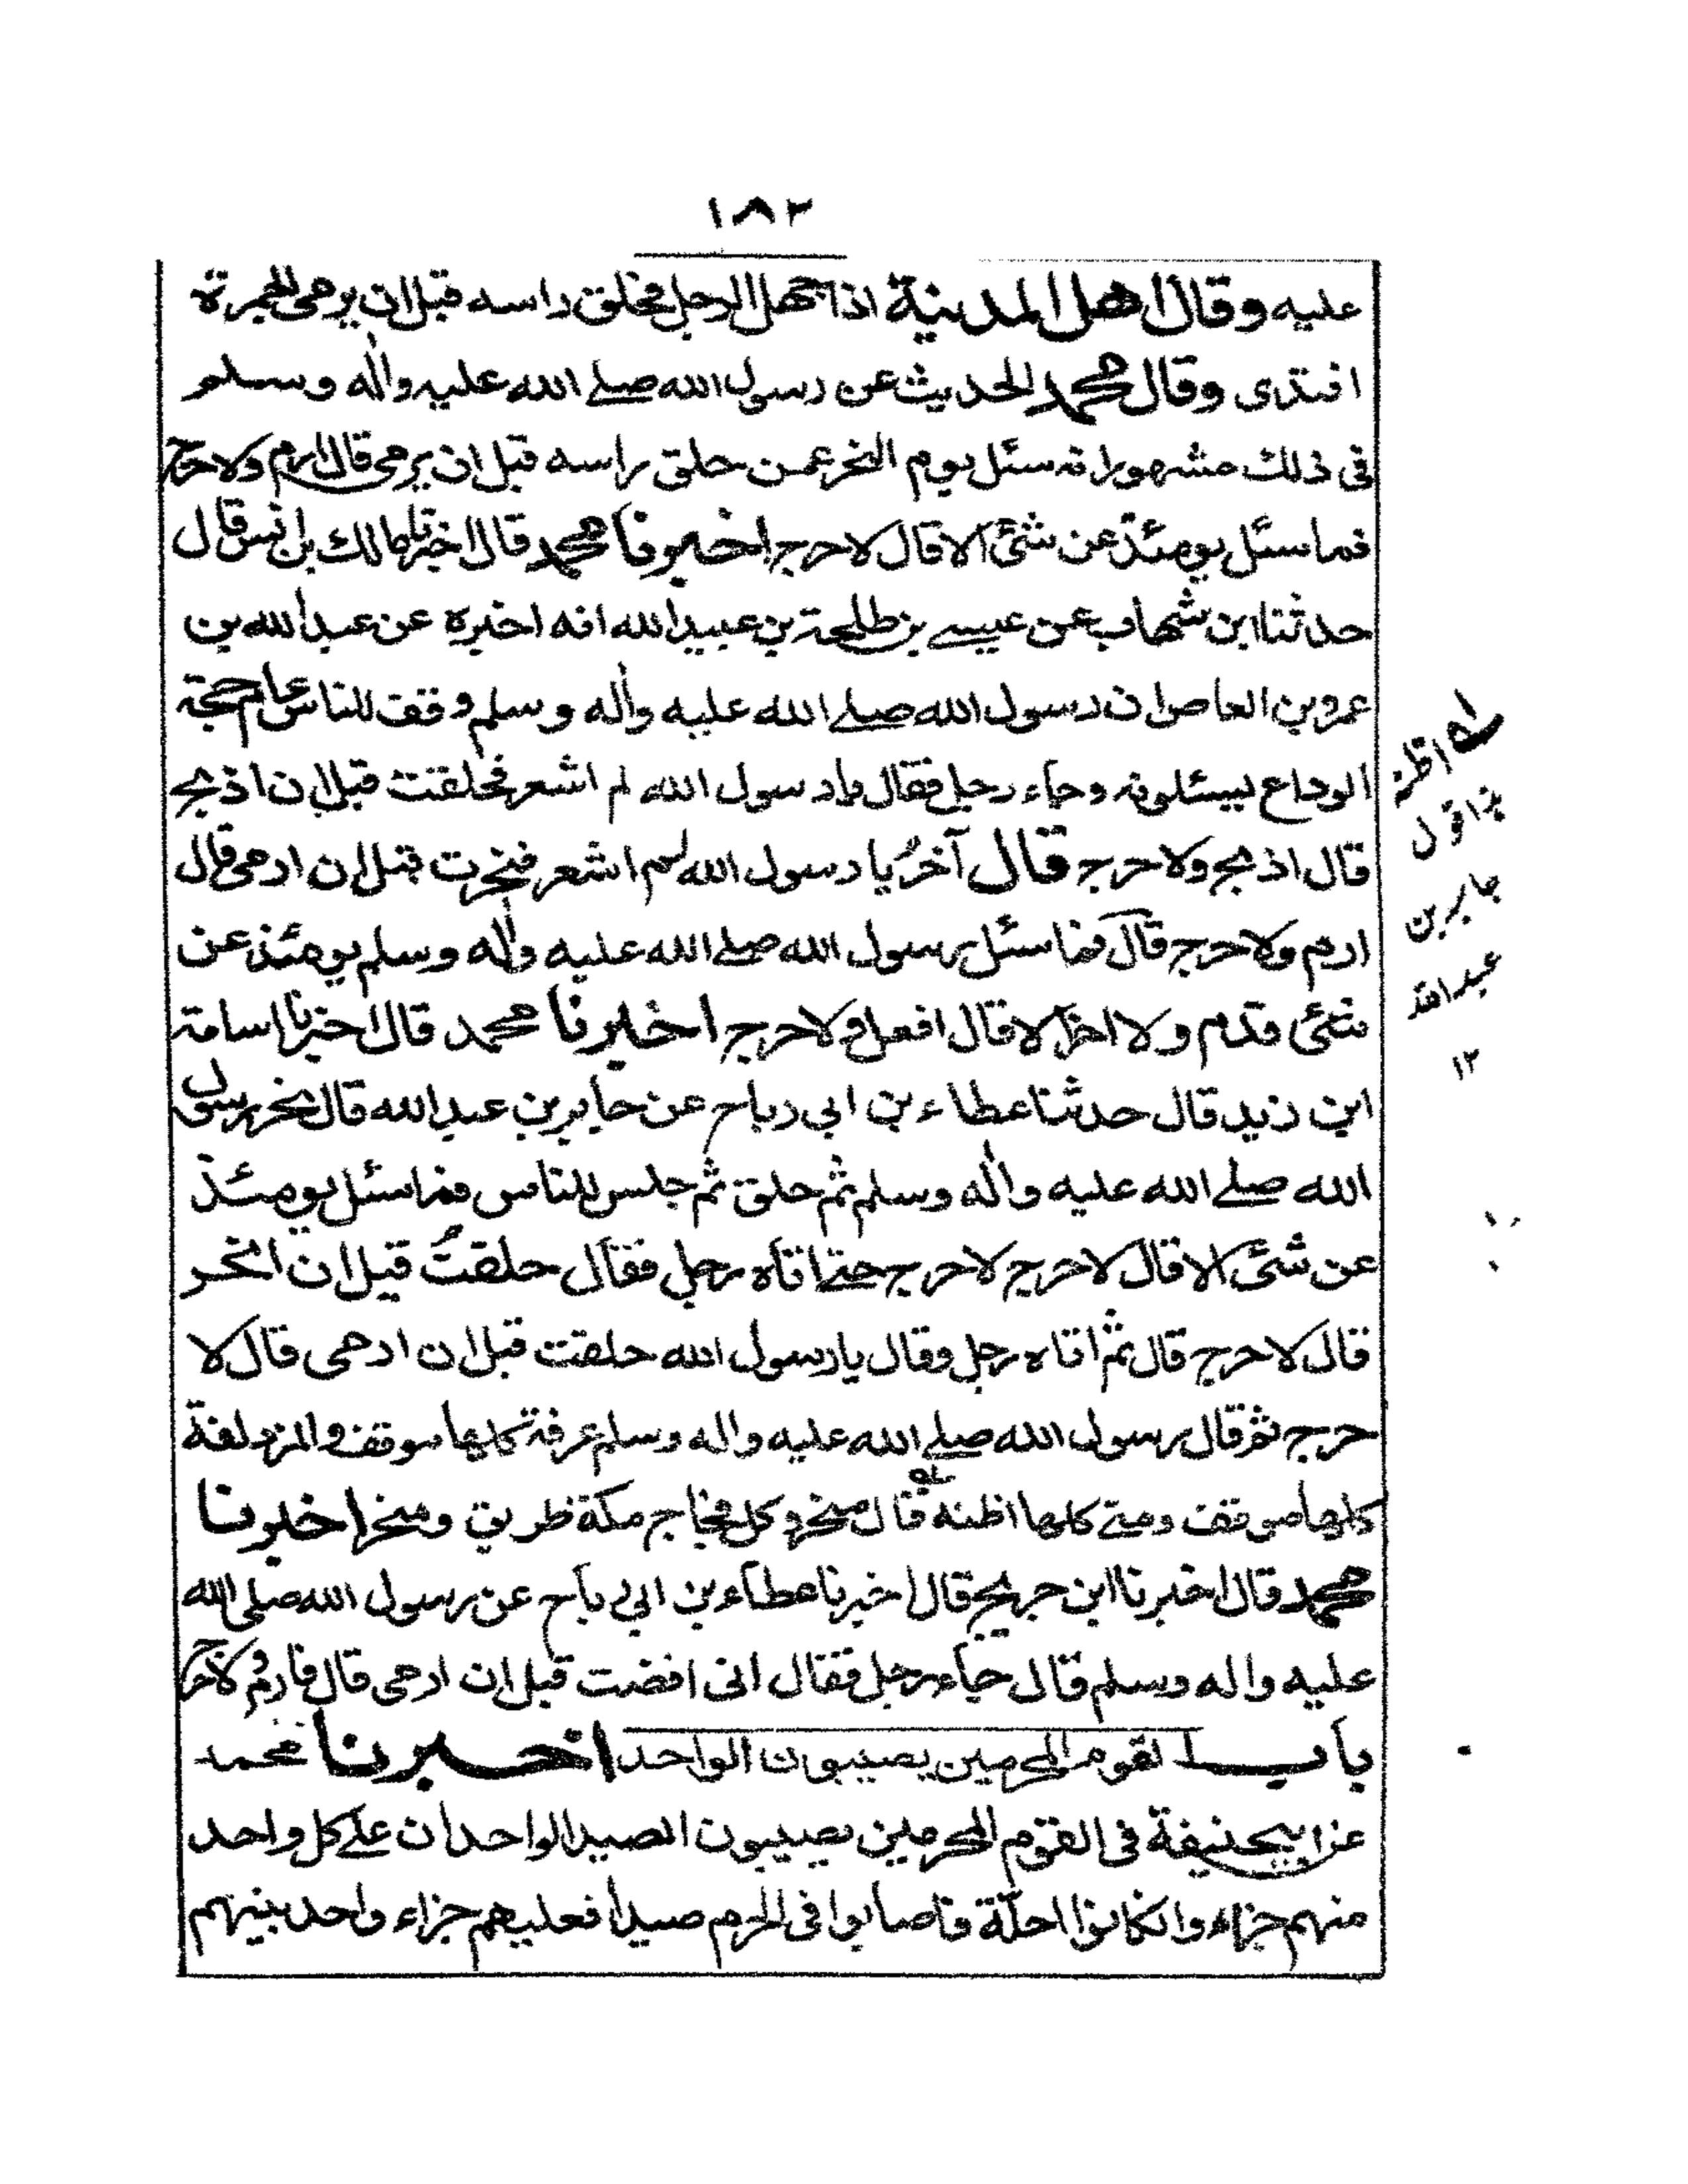 ١٨٢
عليه وقال اهل المدينة اذا جهل الرجل فحلق راسه قبل ان يرمى الجمرة
افتدى وقال محمد الحديث عن رسول الله صلے الله عليه واٰله وسلم
فى ذلك مشهور انه سئل يوم النحر عمن حلق راسه قبل ان يرمى قال ارم ولا حرج
فما سئل يومئذ عن شئ الا قال لا حرج اخبرنا محمد قال اخبرنا مالك بن انس قال
حدثنا ابن شهاب عن عيسے بن طلحة بن عبيد الله انه اخبره عن عبد الله بن
عمرو بن العاص ان رسول الله صلے الله عليه واٰله وسلم وقف للناس عام حجة
الوداع يسئلونه وجاء رجل فقال يا رسول الله لم اشعر فحلقت قبل ان اذبح
قال اذبح ولا حرج قال آخر يا رسول الله لم اشعر فنحرت قبل ان ارمى قال
ارم ولا حرج قال فما سئل رسول الله صلے الله عليه واٰله وسلم يومئذ عن
شئ قدم ولا اخر الا قال افعل ولا حرج اخبرنا محمد قال اخبرنا اسامة
ابن زيد قال حدثنا عطاء بن ابى رباح عن جابر بن عبد الله قال نحر رسول
الله صلے الله عليه واٰله وسلم ثم حلق ثم جلس للناس فما سئل يومئذ
عن شئ الا قال لا حرج لا حرج حتے اتاه رجل فقال حلقت قبل ان انحر
قال لا حرج قال ثم اتاه رجل وقال يا رسول الله حلقت قبل ان ارمى قال لا
حرج ثم قال رسول الله صلے الله عليه واله وسلم عرفة كلها موقف والمزدلفة
كلها موقف ومنے كلها اظنه قال منحر وكل فجاج مكة طريق ومنحر اخبرنا
محمد قال اخبرنا ابن جريج قال اخبرنا عطاء بن ابى رباح عن رسول الله صلى الله
عليه واله وسلم قال جاء رجل فقال انى افضت قبل ان ارمى قال فارم ولا حرج
باب القوم المحرمين يصيبون الواحد اخبرنا محمد
عن ابيحنيفة فى القوم المحرمين يصيبون الصيد الواحد ان علے كل واحد
منهم جزاء وانكانوا احلة فاصابوا فى الحرم صيدا فعليهم جزاء واحد بينهم
له اظن
هذا قول
جابر بن
عبد الله
١٢